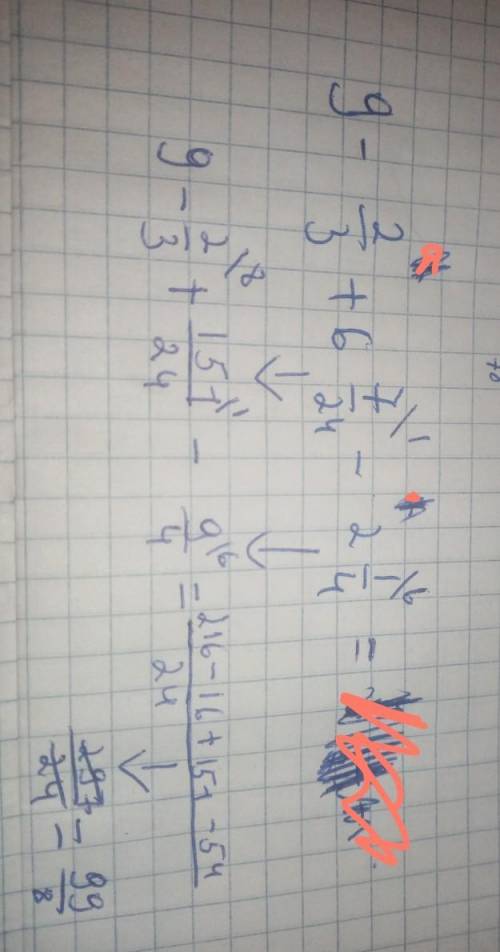 9 - 2/3 + 6 7/24 /1 - 2 1/4 /6 =
9 - 2/3 /8 + 151/24 /1 - 9/4 /6 = (216 - 16 + 151 - 54)/24
297/24 = 99/8